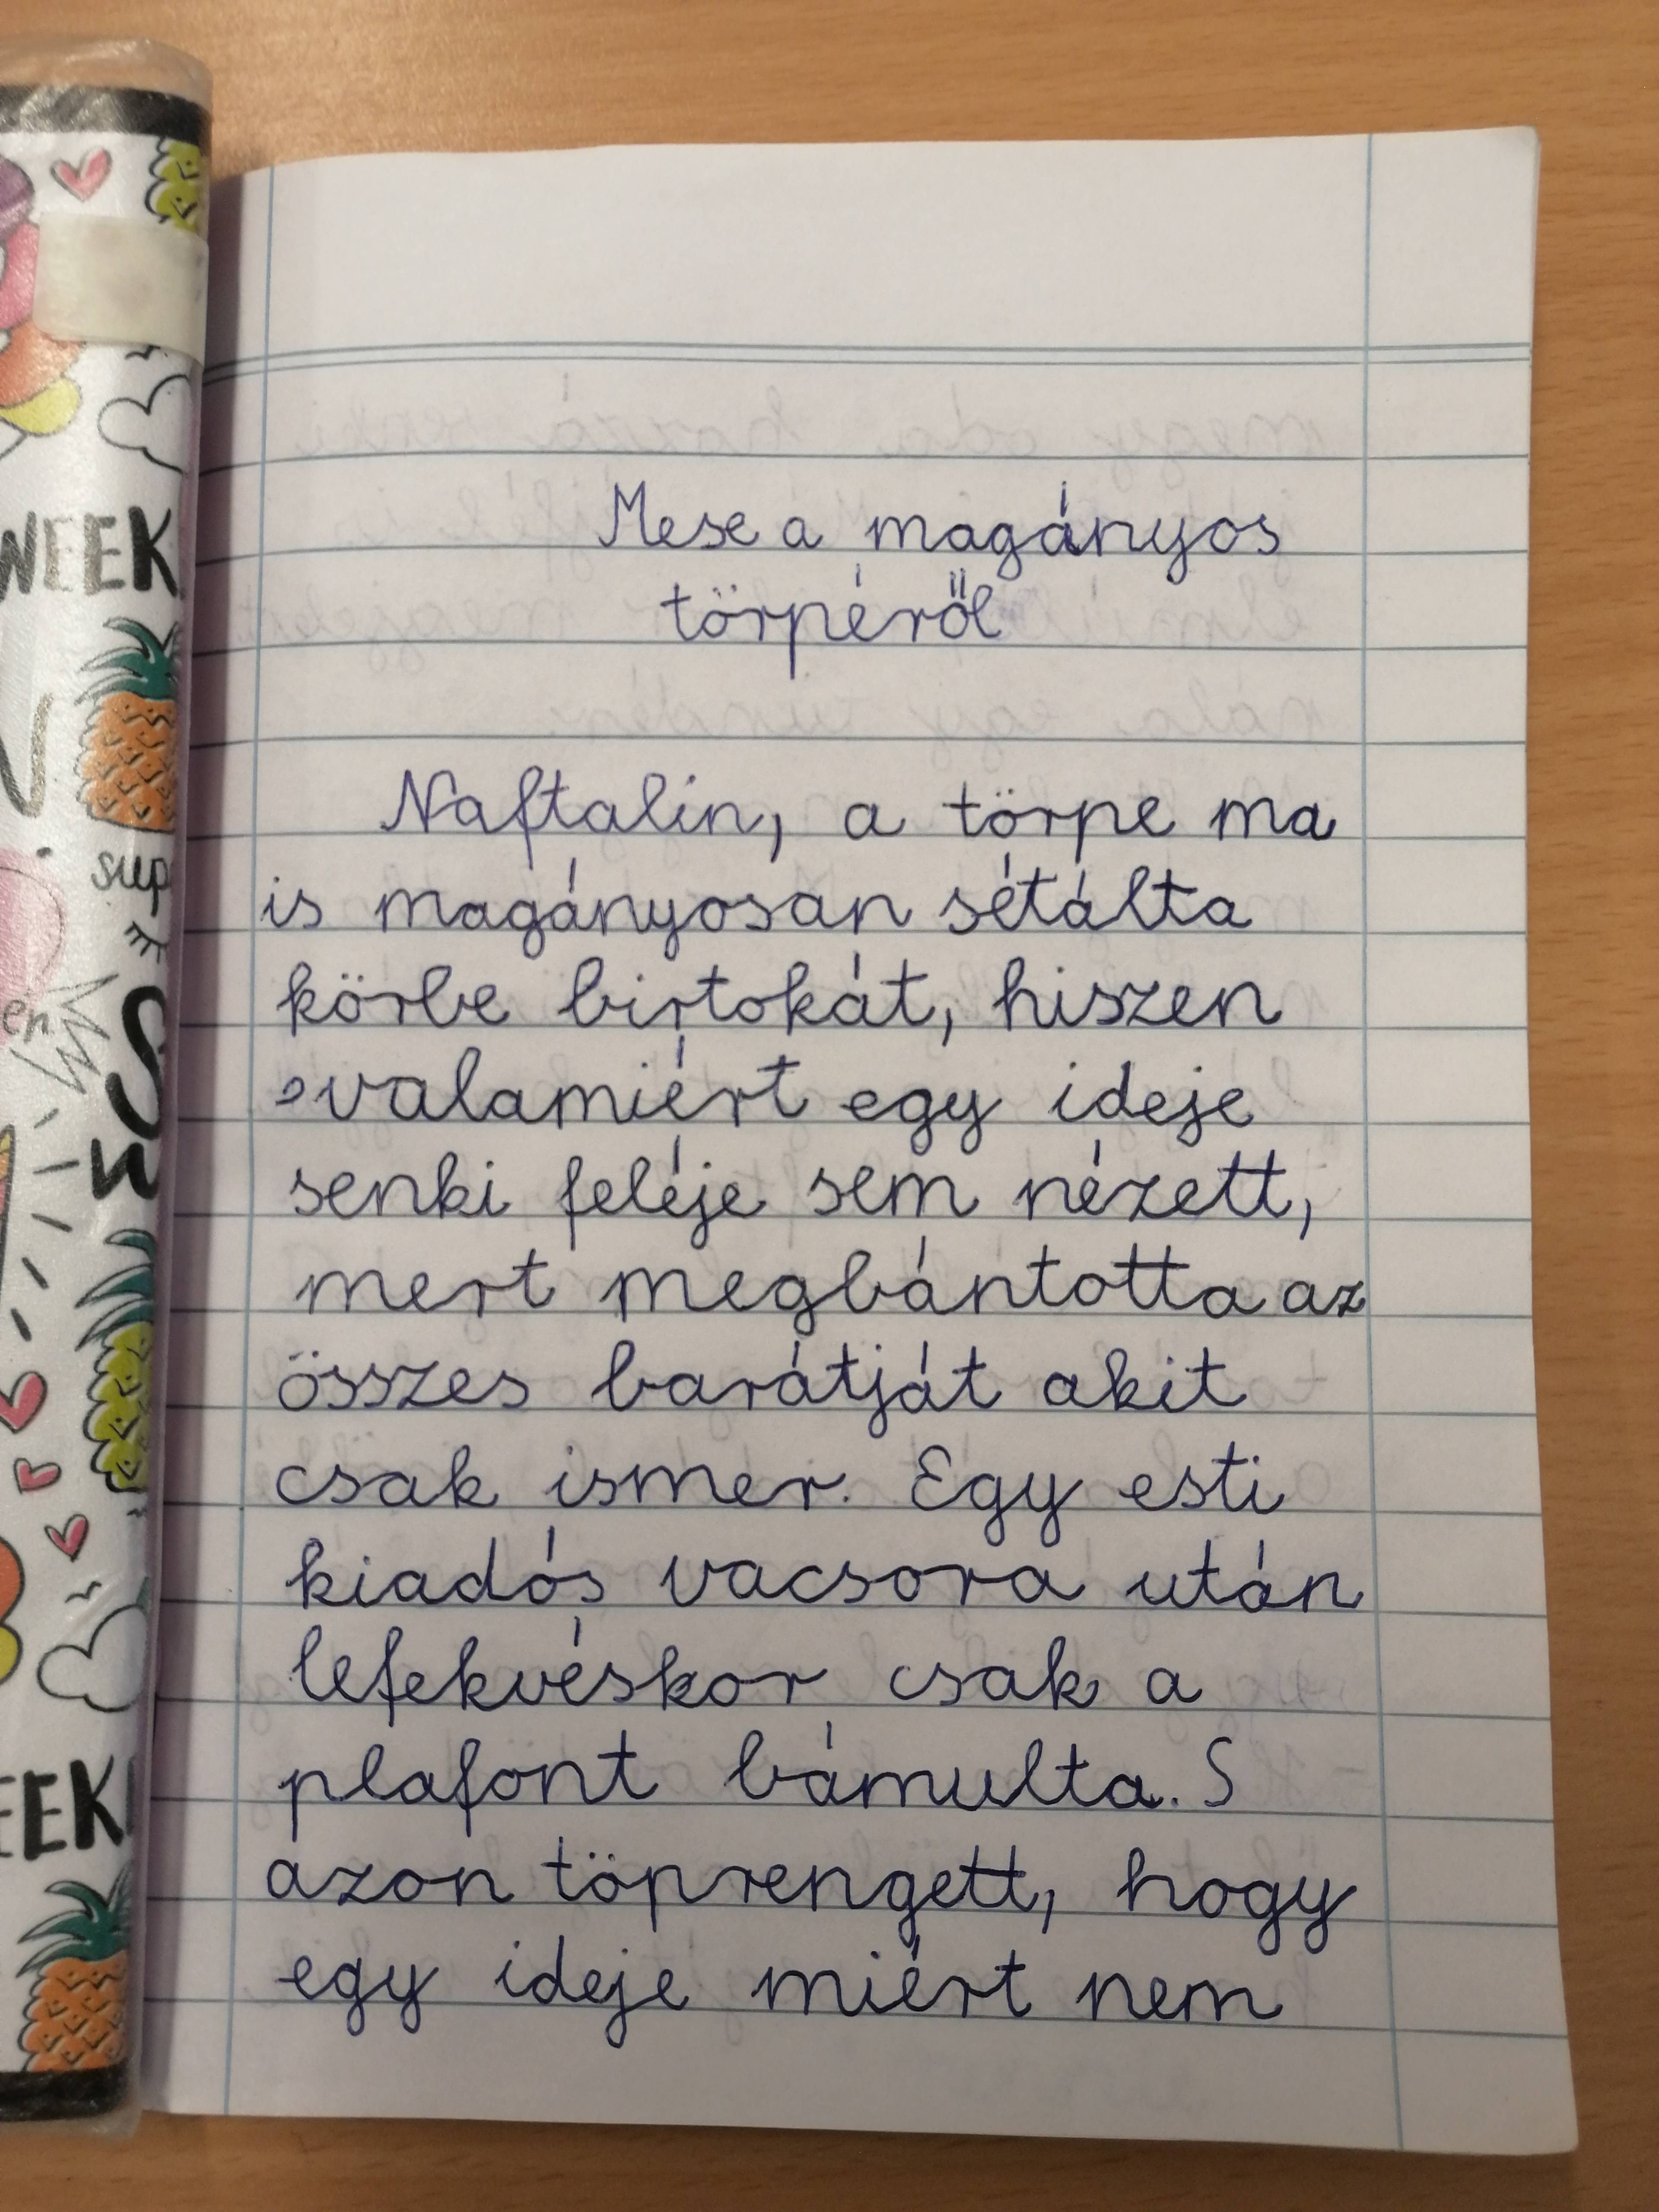 WEEK
sup
en
S
EEK
Mese a magányos
törpéről
Naftalin, a törpe ma
is magányosan sétálta
körbe birtokát, hiszen
valamiért egy ideje
senki feléje sem nézett,
mert megbántotta az
összes barátját akit
csak ismer. Egy esti
kiadós vacsora után
lefekvéskor csak a
plafont bámulta. S
azon töprengett, hogy
egy ideje miért nem